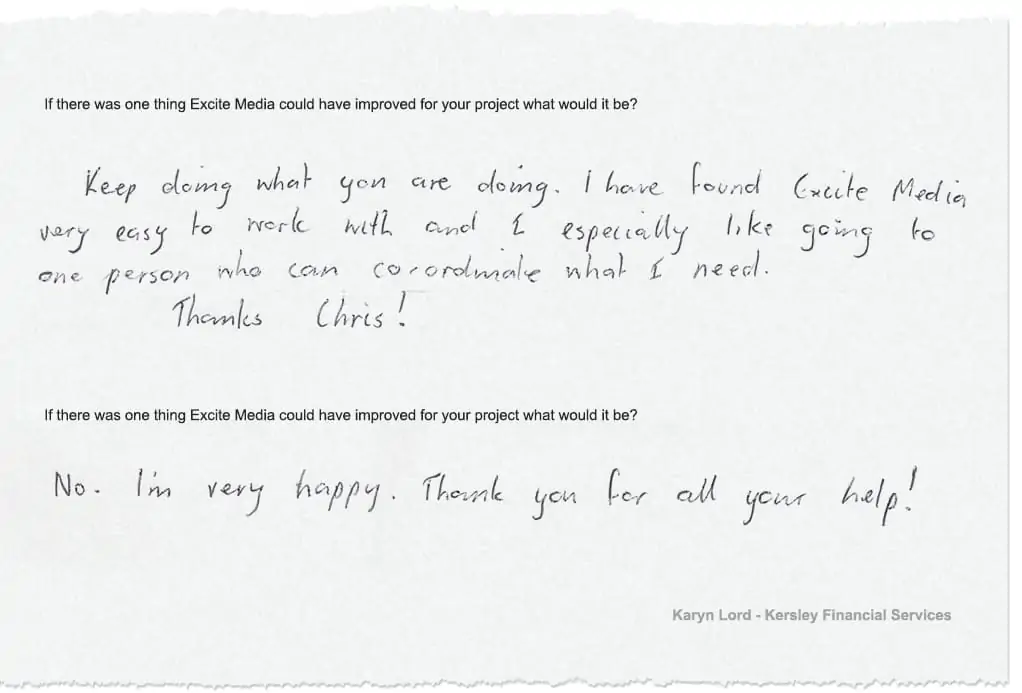 If there was one thing Excite Media could have improved for your project what would it be?
Keep doing what you are doing. I have found Excite Media
very easy to work with and I especially like going to
one person who can co-ordinate what I need.
Thanks Chris!
If there was one thing Excite Media could have improved for your project what would it be?
No. I'm very happy. Thank you for all your help!
Karyn Lord - Kersley Financial Services